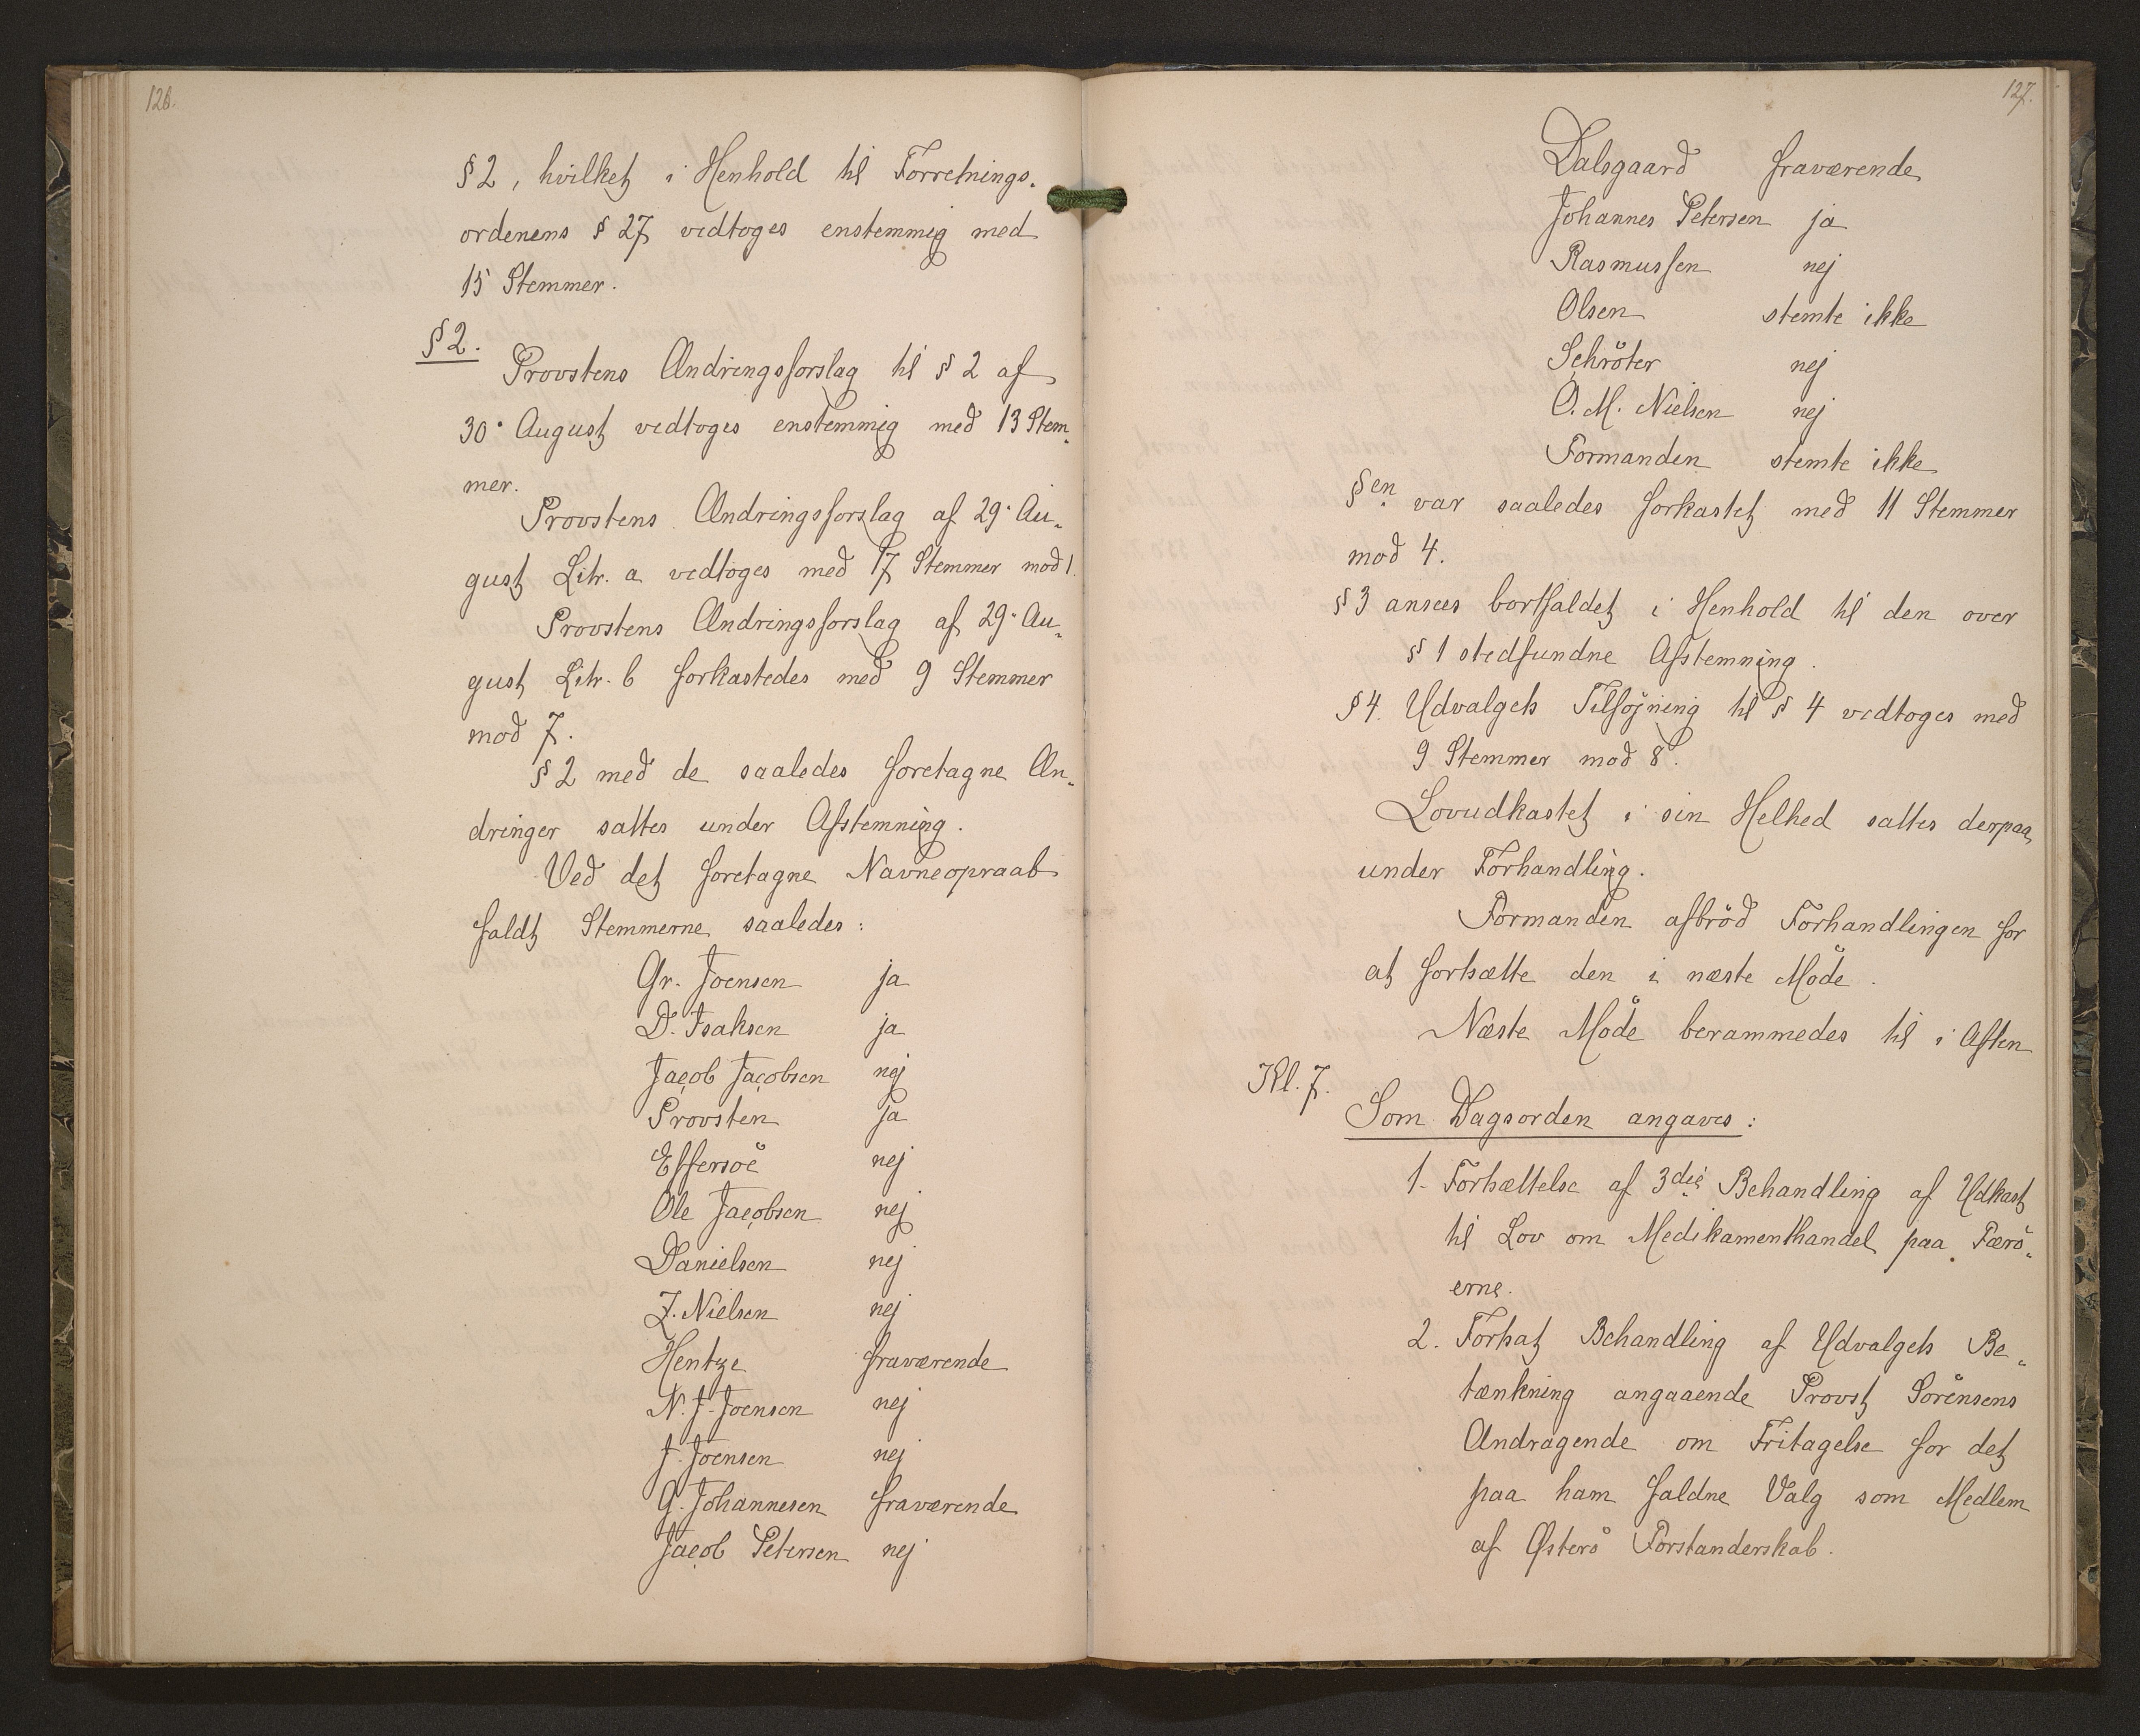 126.
§ 2, hvilket i Henhold til Forretnings-
ordenens § 27 vedtoges enstemmig med
15 Stemmer.
§ 2.
Provstens Ændringsforslag til § 2 af
30. August vedtoges enstemmig med 13 Stem-
mer.
Provstens Ændringsforslag af 29. Au-
gust Litr. a vedtoges med 17 Stemmer mod 1.
Provstens Ændringsforslag af 29. Au-
gust Litr. b forkastedes med 9 Stemmer
mod 7.
§ 2 med de saaledes foretagne Æn-
dringer sattes under Afstemning.
Ved det foretagne Navneopraab
faldt Stemmerne saaledes:
Gr. Joensen ja
D. Isaksen ja
Jacob Jacobsen nej
Provsten ja
Effersöe nej
Ole Jacobsen nej
Danielsen nej
Z. Nielsen nej
Hentze fraværende
N. J. Joensen nej
J. Joensen nej
G. Johannesen fraværende
Jacob Petersen nej
127.
Dalsgaard fraværende
Johannes Petersen ja
Rasmussen nej
Olsen stemte ikke
Schröter nej
O. M. Nielsen nej
Formanden stemte ikke
§en var saaledes forkastet med 11 Stemmer
mod 4.
§ 3 ansees bortfaldet i Henhold til den over
§ 1 stedfundne Afstemning.
§ 4. Udvalgets Tilföjning til § 4 vedtoges med
9 Stemmer mod 8.
Lovudkastet i sin Helhed sattes derpaa
under Forhandling.
Formanden afbröd Forhandlingen for
at fortsætte den i næste Möde.
Næste Möde berammedes til i Aften
Kl. 7.
Som Dagsorden angaves:
1. Fortsættelse af 3die Behandling af Udkast
til Lov om Medikamenthandel paa Færö-
erne.
2. Fortsat Behandling af Udvalgets Be-
tænkning angaaende Provst Sörensens
Andragende om Fritagelse for det
paa ham faldne Valg som Medlem
af Østerö Forstanderskab.